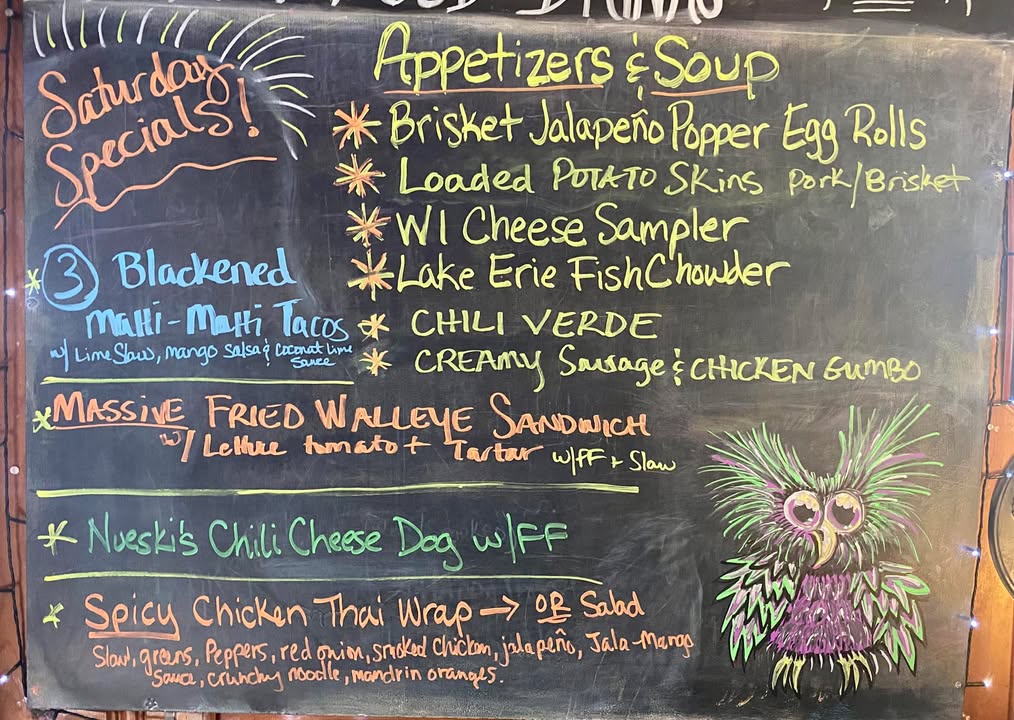 Saturday
Specials!
Appetizers & Soup
Brisket Jalapeño Popper Egg Rolls
Loaded POTATO Skins Pork/Brisket
WI Cheese Sampler
Lake Erie Fish Chowder
CHILI VERDE
CREAMY Sausage & CHICKEN GUMBO
3 Blackened
MaHi-MaHi Tacos
w/ Lime Slaw, mango Salsa & Coconut Lime
Sauce
MASSIVE FRIED WALLEYE SANDWICH
w/ Lettuce tomato + Tartar w/FF + Slaw
Nueski's Chili Cheese Dog w/FF
Spicy Chicken Thai Wrap → OR Salad
Slaw, greens, Peppers, red onion, smoked Chicken, jalapeño, Jala-Mango
Sauce, crunchy noodle, mandrin oranges.